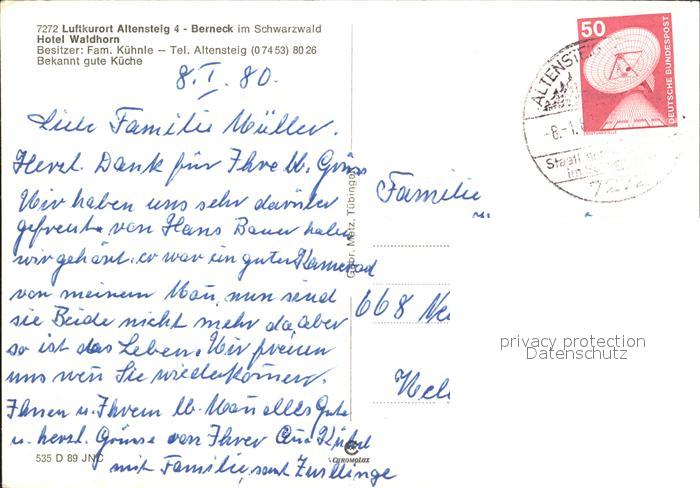 7272 Luftkurort Altensteig 4 - Berneck im Schwarzwald
Hotel Waldhorn
Besitzer: Fam. Kühnle — Tel. Altensteig (07453) 8026
Bekannt gute Küche
8. I. 80.
Liebe Familie Müller.
Herzl. Dank für Ihre lb. Grüss
Wir haben uns sehr darüber
gefreut. von Hans Bauer haben
wir gehört. er war ein guter Kamerad
von meinem Man, nun sind
sie Beide nicht mehr da, aber
so ist das Leben. Wir freuen
uns wen Sie wiederkommen.
Ihnen u. Ihrem lb. Man alles Gute
u. herzl. Grüsse von Ihrer
mit Familie, samt Zwillinge
535 D 89 JNC
CHROMOLUX
Gebr. Metz, Tübingen
50
DEUTSCHE BUNDESPOST
ALTENSTEIG
-8.-1.
Staatl.
im
7272
Familie
668 Ne
privacy protection
Datenschutz